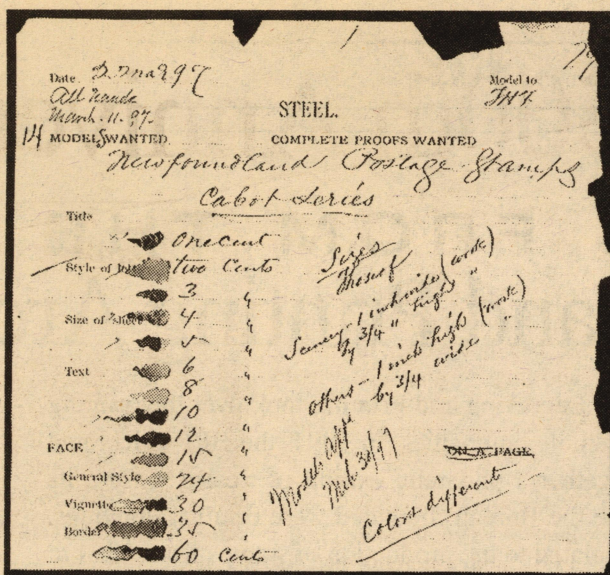 79
Date 2 Mar 97
Model to
All hands
March. 11. 97.
STEEL.
14 MODELS WANTED
COMPLETE PROOFS WANTED
Newfoundland Postage Stamps
Cabot Series
Title
One cent
Style of
two Cents
3 "
Size of Sheet 4 "
5 "
Text 6 "
8 "
10 "
12 "
FACE 15 "
General Style 24 "
Vignette 30 "
Border 35 "
60 Cents
Sizes
thereof
Scenery - 1 inch wide (work)
by 3/4 " high "
others - 1 inch high (work)
by 3/4 wide "
Models
Mch 30/97
ON A PAGE
Colors different